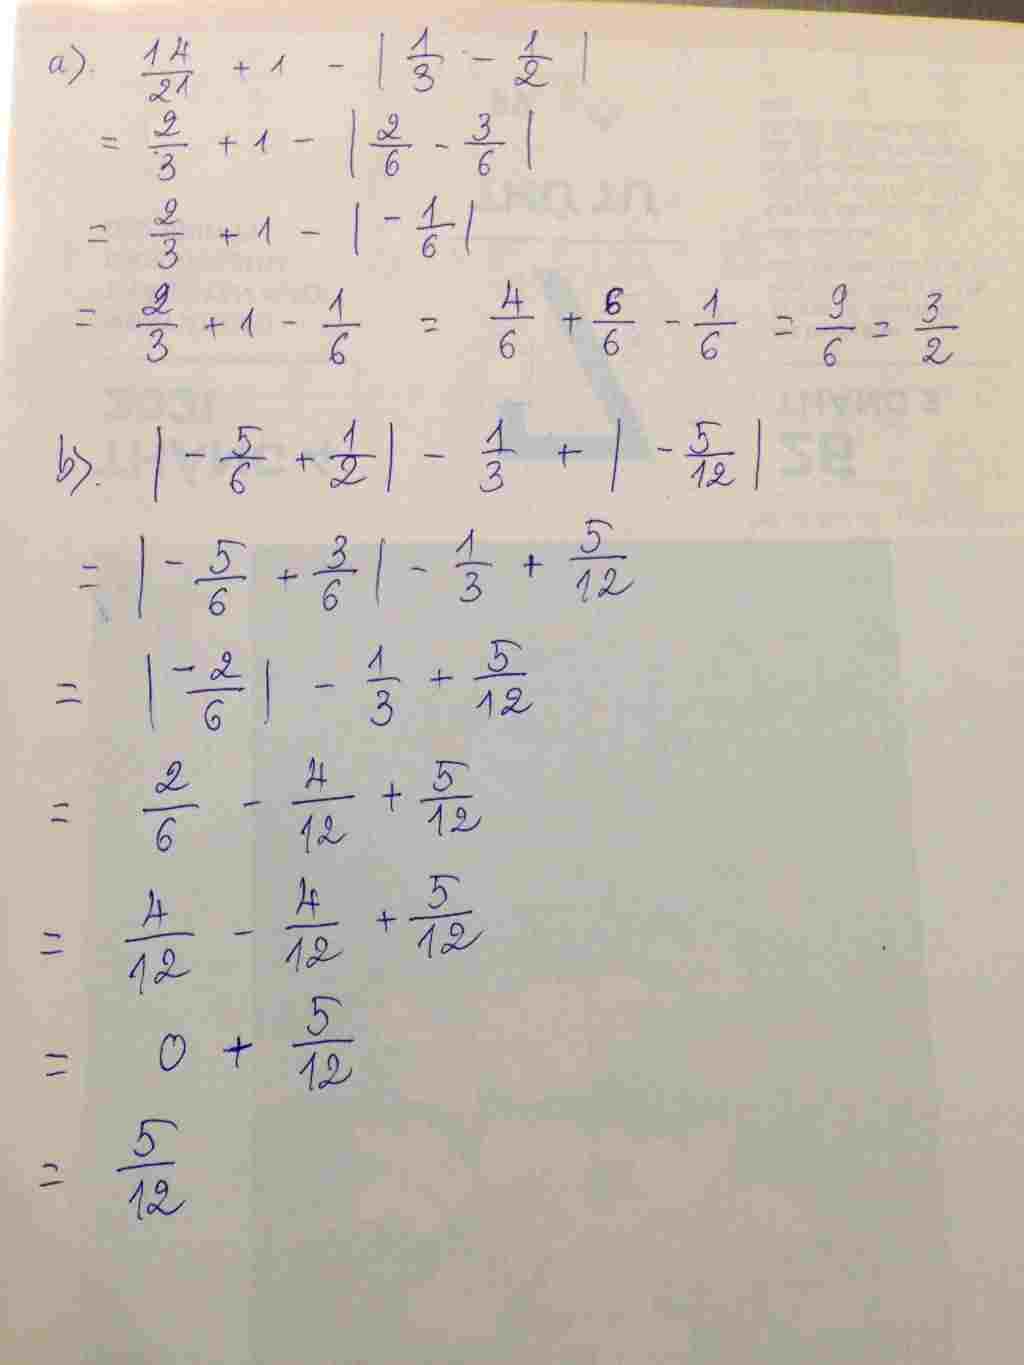 a). 14/21 + 1 - | 1/3 - 1/2 |
= 2/3 + 1 - | 2/6 - 3/6 |
= 2/3 + 1 - | -1/6 |
= 2/3 + 1 - 1/6 = 4/6 + 6/6 - 1/6 = 9/6 = 3/2
b). | - 5/6 + 1/2 | - 1/3 + | - 5/12 |
= | - 5/6 + 3/6 | - 1/3 + 5/12
= | -2/6 | - 1/3 + 5/12
= 2/6 - 4/12 + 5/12
= 4/12 - 4/12 + 5/12
= 0 + 5/12
= 5/12